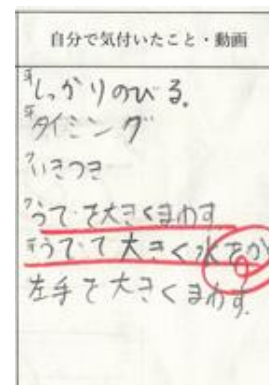 自分で気付いたこと・動画
しっかりのびる。
タイミング
いきつぎ
うでを大きくまわす
うでで大きく水をか
左手を大きくまわす。